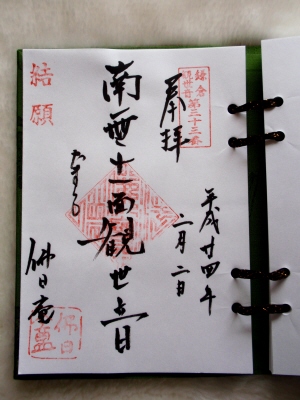 鎌倉
観世音
第三十三番
奉拝
平成廿四年
二月二日
南無十一面観世音
佛日庵
結願
佛日